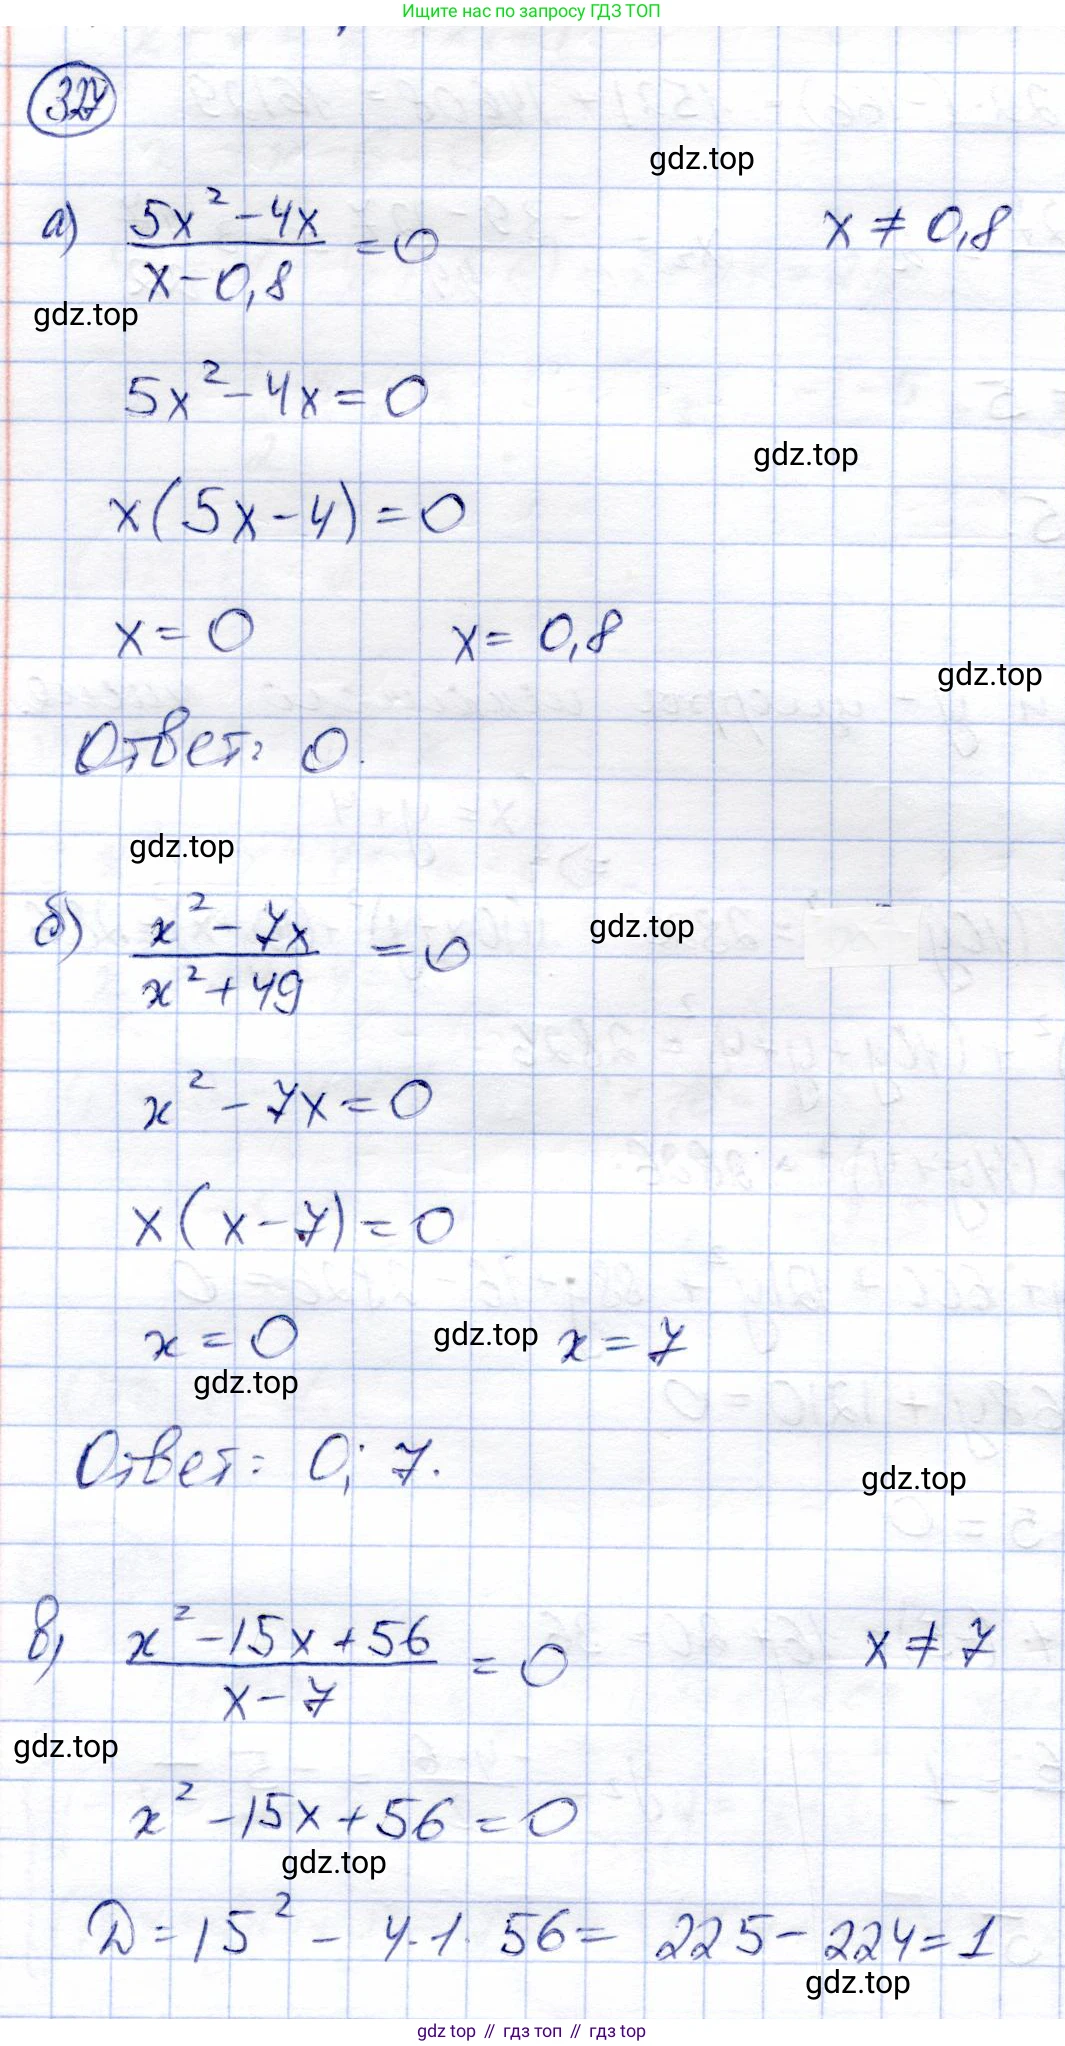 Ищите нас по запросу ГДЗ ТОП
327
gdz.top
а) (5x² - 4x)/(x - 0,8) = 0    x ≠ 0,8
gdz.top
5x² - 4x = 0
gdz.top
x(5x - 4) = 0
x = 0    x = 0,8
gdz.top
Ответ: 0.
gdz.top
gdz.top
б) (x² - 7x)/(x² + 49) = 0
x² - 7x = 0
x(x - 7) = 0
x = 0    gdz.top    x = 7
gdz.top
Ответ: 0; 7.
gdz.top
в) (x² - 15x + 56)/(x - 7) = 0    x ≠ 7
gdz.top
x² - 15x + 56 = 0
gdz.top
D = 15² - 4·1·56 = 225 - 224 = 1
gdz.top
gdz top // гдз топ // gdz top